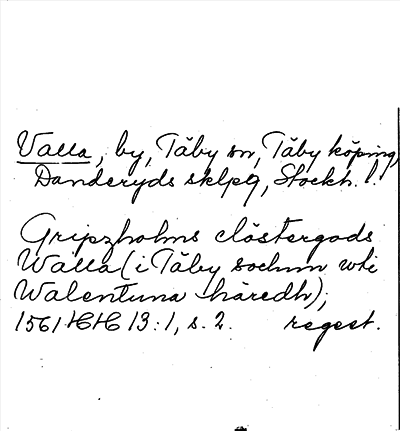 Valla, by, Täby sn, Täby köping,
Danderyds sklpg, Stockh. l.
Gripzholms clöstergods
Walla (i Täby sochnn wti
Walentuna häredh);
1561 HH 13:1, s. 2. regest.